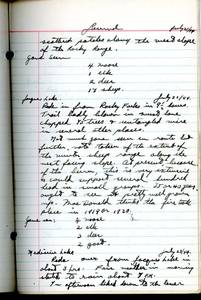 Burned July 20/44
scattered patches along the west slope
of the Rocky Range.
Game Seen
4 moose
1 elk
2 deer
17 sheep.
Jacques Lake. July 21/44
Rode in from Rocky Forks in 2½ hours.
Trail badly blown in most laces
chopped 15 trees & untangled wire
in several other places.
Not much game seen on route but
further note taken of the extent of
the winter sheep range along the
west facing slope. At present because
of the burn, this is very extensive
& could support several hundred
head in small groups.
ought to see it pretty well
up. Mac thinks the fire took
place in 1919 or 1920.
Game seen: 2 moose
2 elk
3 deer
2 goat.
Medicine Lake July 22/44
Rode over from Jacques Lake in
about 3 hrs. Fair weather in morning
starts to rain about 7 P.M.
In afternoon hiked down to the lower